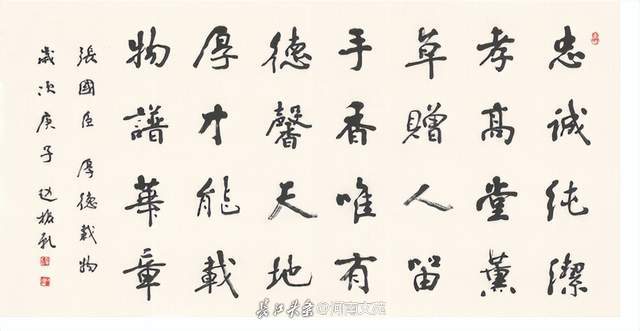 忠誠純潔
孝高堂薰
草贈人留
手香唯有
德馨天地
厚才能載
物譜華章
張國臣 厚德載物
歲次庚子 振乾
@河南文苑